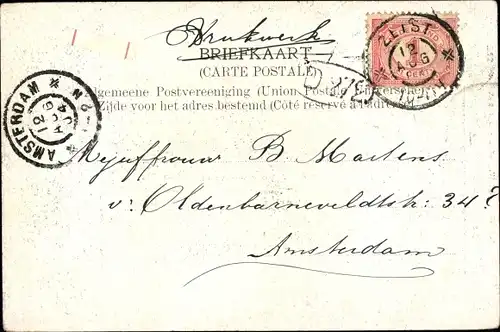 Drukwerk
BRIEFKAART
(CARTE POSTALE)
Algemeene Postvereeniging (Union Postale Universelle)
Zijde voor het adres bestemd (Côté réservé à l'adresse)
ZEIST
12
AUG
AMSTERDAM
12 AUG 04
Mejuffrouw B Martens
v: Oldenbarneveldtstr: 34?
Amsterdam